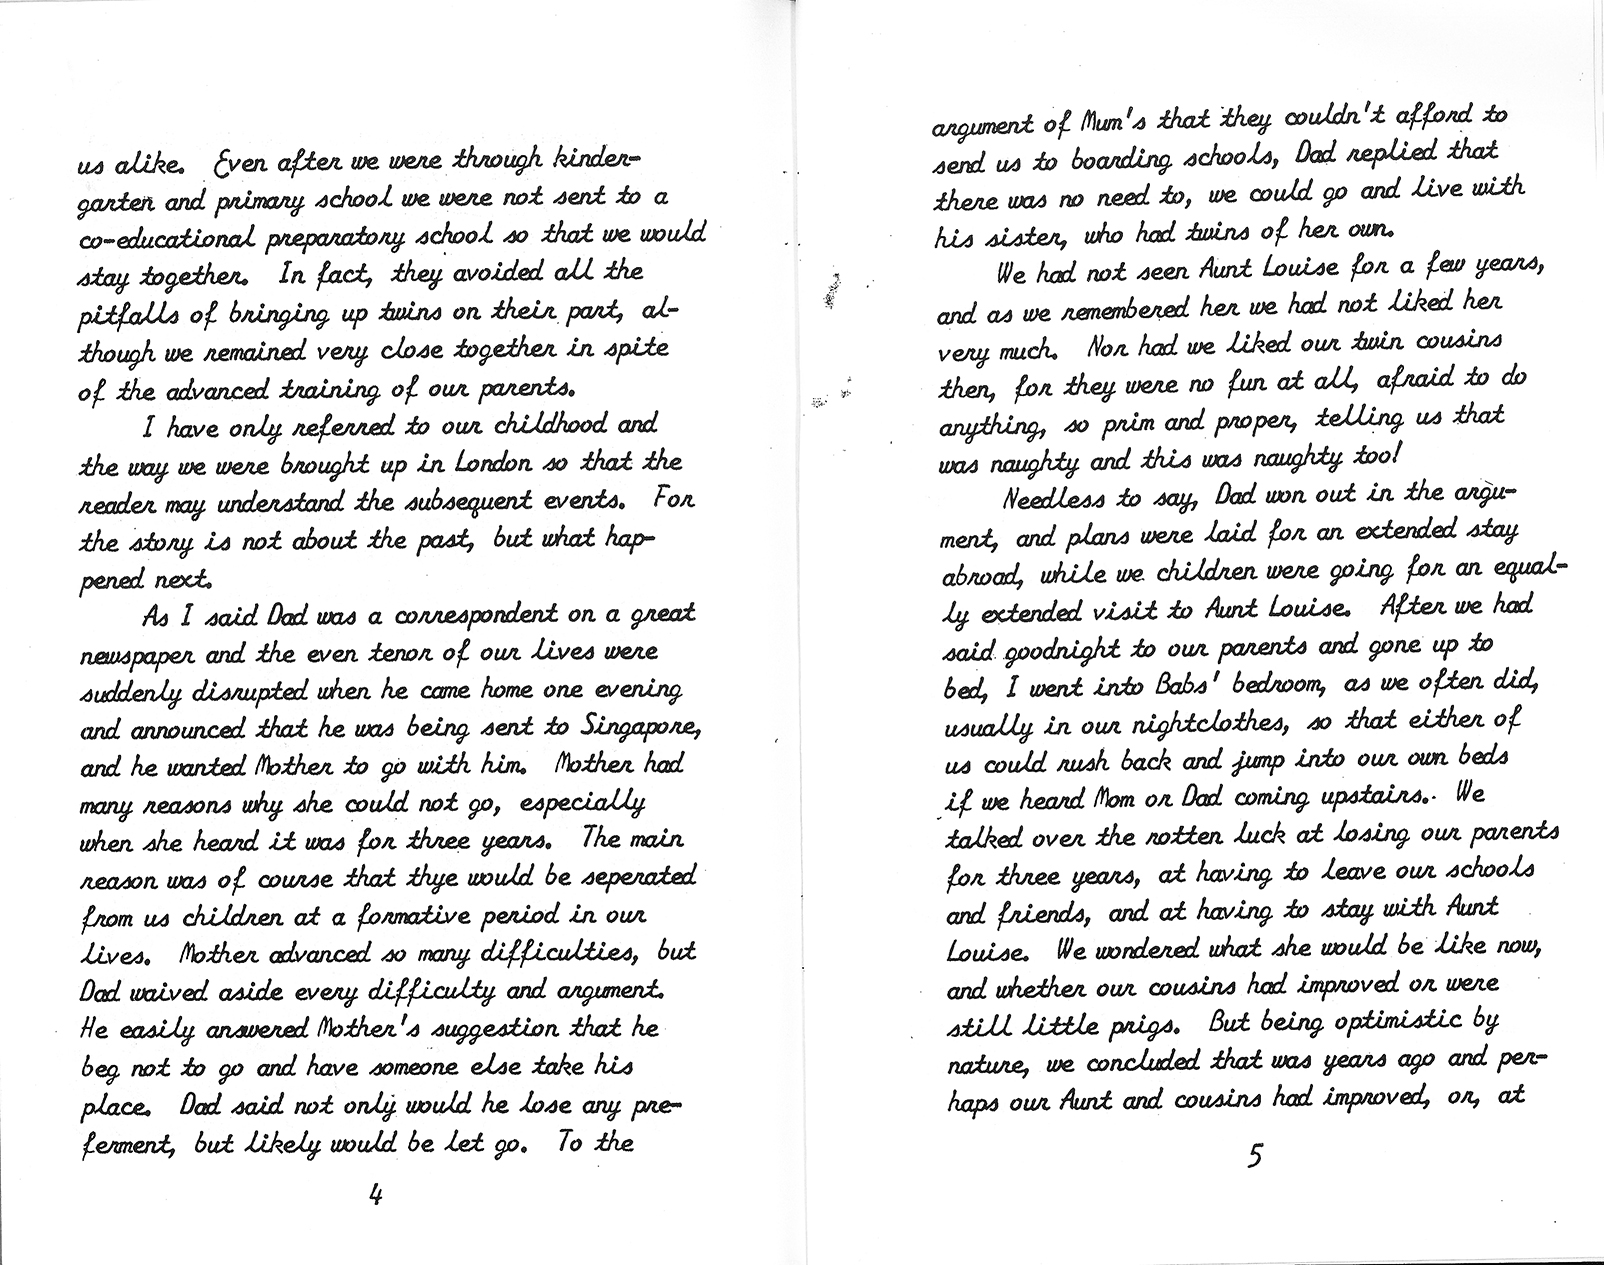 us alike.  Even after we were through kinder-
garten and primary school we were not sent to a
co-educational preparatory school so that we would
stay together.  In fact, they avoided all the
pitfalls of bringing up twins on their part, al-
though we remained very close together in spite
of the advanced training of our parents.
I have only referred to our childhood and
the way we were brought up in London so that the
reader may understand the subsequent events.  For
the story is not about the past, but what hap-
pened next.
As I said Dad was a correspondent on a great
newspaper and the even tenor of our lives were
suddenly disrupted when he came home one evening
and announced that he was being sent to Singapore,
and he wanted Mother to go with him.  Mother had
many reasons why she could not go, especially
when she heard it was for three years.  The main
reason was of course that thye would be seperated
from us children at a formative period in our
lives.  Mother advanced so many difficulties, but
Dad waived aside every difficulty and argument.
He easily answered Mother's suggestion that he
beg not to go and have someone else take his
place.  Dad said not only would he lose any pre-
ferment, but likely would be let go.  To the
4
argument of Mum's that they couldn't afford to
send us to boarding schools, Dad replied that
there was no need to, we could go and live with
his sister, who had twins of her own.
We had not seen Aunt Louise for a few years,
and as we remembered her we had not liked her
very much.  Nor had we liked our twin cousins
then, for they were no fun at all, afraid to do
anything, so prim and proper, telling us that
was naughty and this was naughty too!
Needless to say, Dad won out in the argu-
ment, and plans were laid for an extended stay
abroad, while we children were going for an equal-
ly extended visit to Aunt Louise.  After we had
said goodnight to our parents and gone up to
bed, I went into Babs' bedroom, as we often did,
usually in our nightclothes, so that either of
us could rush back and jump into our own beds
if we heard Mom or Dad coming upstairs..  We
talked over the rotten luck at losing our parents
for three years, at having to leave our schools
and friends, and at having to stay with Aunt
Louise.  We wondered what she would be like now,
and whether our cousins had improved or were
still little prigs.  But being optimistic by
nature, we concluded that was years ago and per-
haps our Aunt and cousins had improved, or, at
5